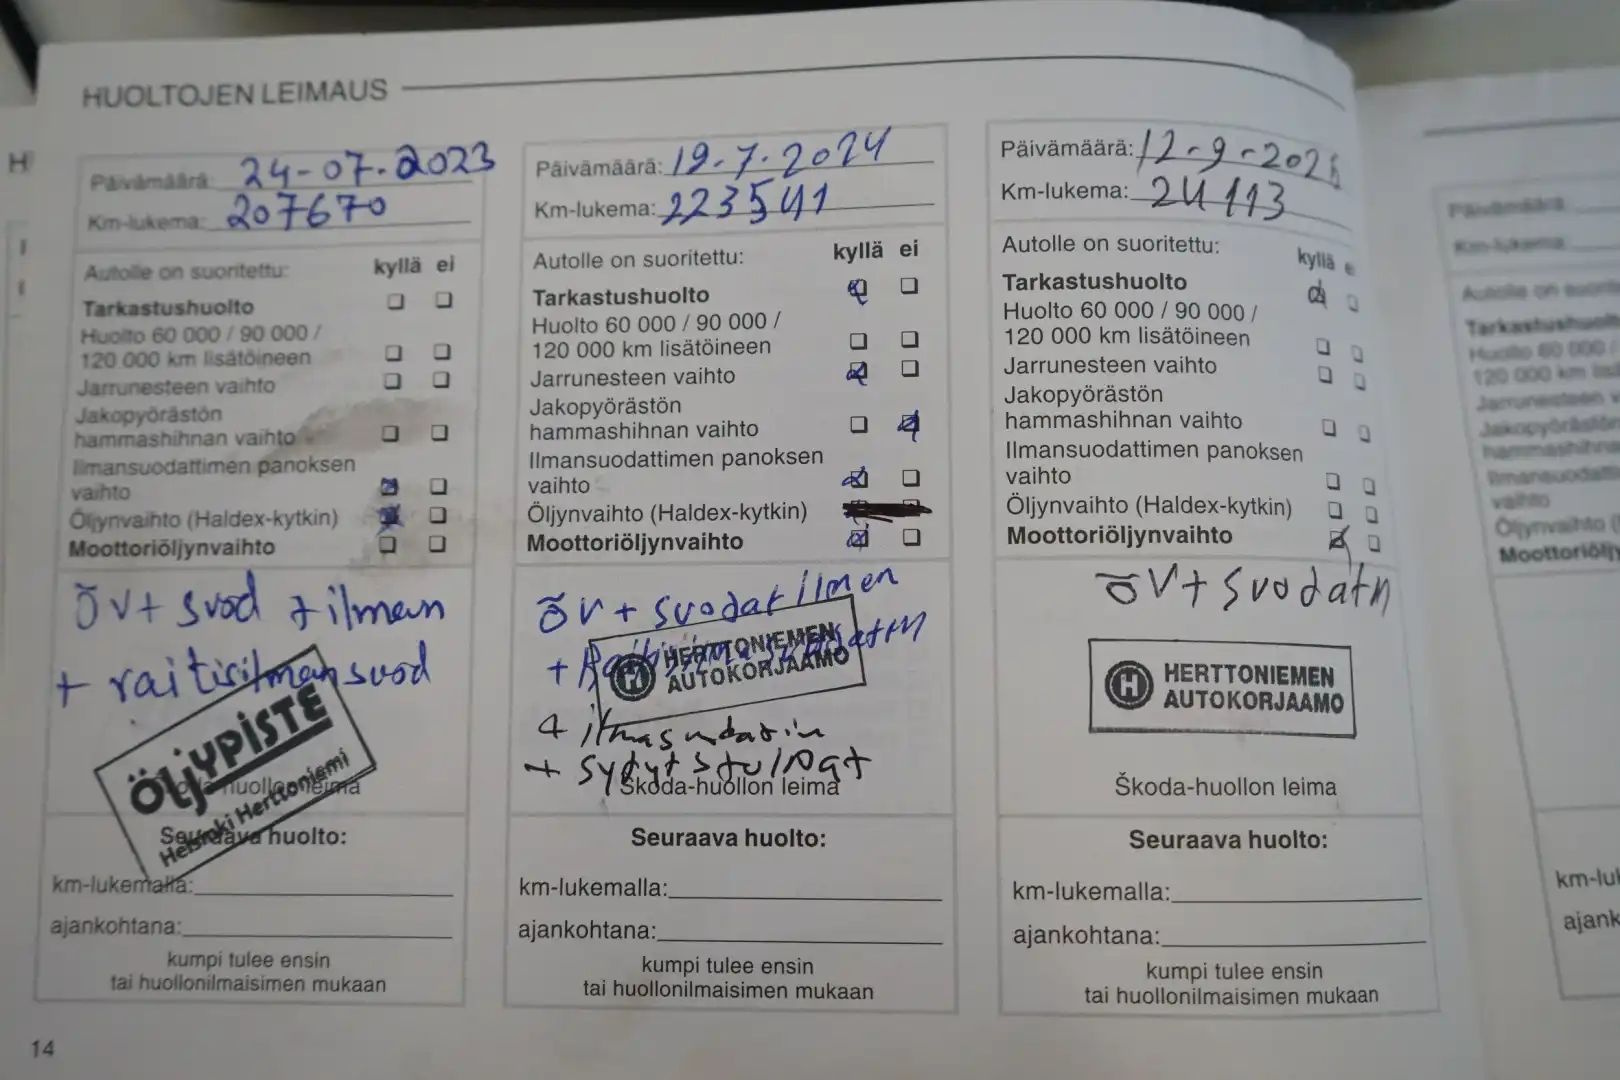 HUOLTOJEN LEIMAUS
Päivämäärä: 24-07.2023
Km-lukema: 207670
Autolle on suoritettu: kyllä ei
Tarkastushuolto
Huolto 60 000 / 90 000 /
120 000 km lisätöineen
Jarrunesteen vaihto
Jakopyörästön
hammashihnan vaihto
Ilmansuodattimen panoksen
vaihto
Öljynvaihto (Haldex-kytkin)
Moottoriöljynvaihto
öv+ svod + ilman
+ raitisilmansuod
ÖljYPISTE
Helsinki Herttoniemi
Škoda-huollon leima
Seuraava huolto:
km-lukemalla:
ajankohtana:
kumpi tulee ensin
tai huollonilmaisimen mukaan
14
Päivämäärä: 19.7.2024
Km-lukema: 223541
Autolle on suoritettu: kyllä ei
Tarkastushuolto
Huolto 60 000 / 90 000 /
120 000 km lisätöineen
Jarrunesteen vaihto
Jakopyörästön
hammashihnan vaihto
Ilmansuodattimen panoksen
vaihto
Öljynvaihto (Haldex-kytkin)
Moottoriöljynvaihto
öv + suodat ilmen
HERTTONIEMEN
AUTOKORJAAMO
+ sytytstulpat
Škoda-huollon leima
Seuraava huolto:
km-lukemalla:
ajankohtana:
kumpi tulee ensin
tai huollonilmaisimen mukaan
Päivämäärä: 12-9-202
Km-lukema: 24113
Autolle on suoritettu: kyllä e
Tarkastushuolto
Huolto 60 000 / 90 000 /
120 000 km lisätöineen
Jarrunesteen vaihto
Jakopyörästön
hammashihnan vaihto
Ilmansuodattimen panoksen
vaihto
Öljynvaihto (Haldex-kytkin)
Moottoriöljynvaihto
öv+ suodatn
HERTTONIEMEN
AUTOKORJAAMO
Škoda-huollon leima
Seuraava huolto:
km-lukemalla:
ajankohtana:
kumpi tulee ensin
tai huollonilmaisimen mukaan